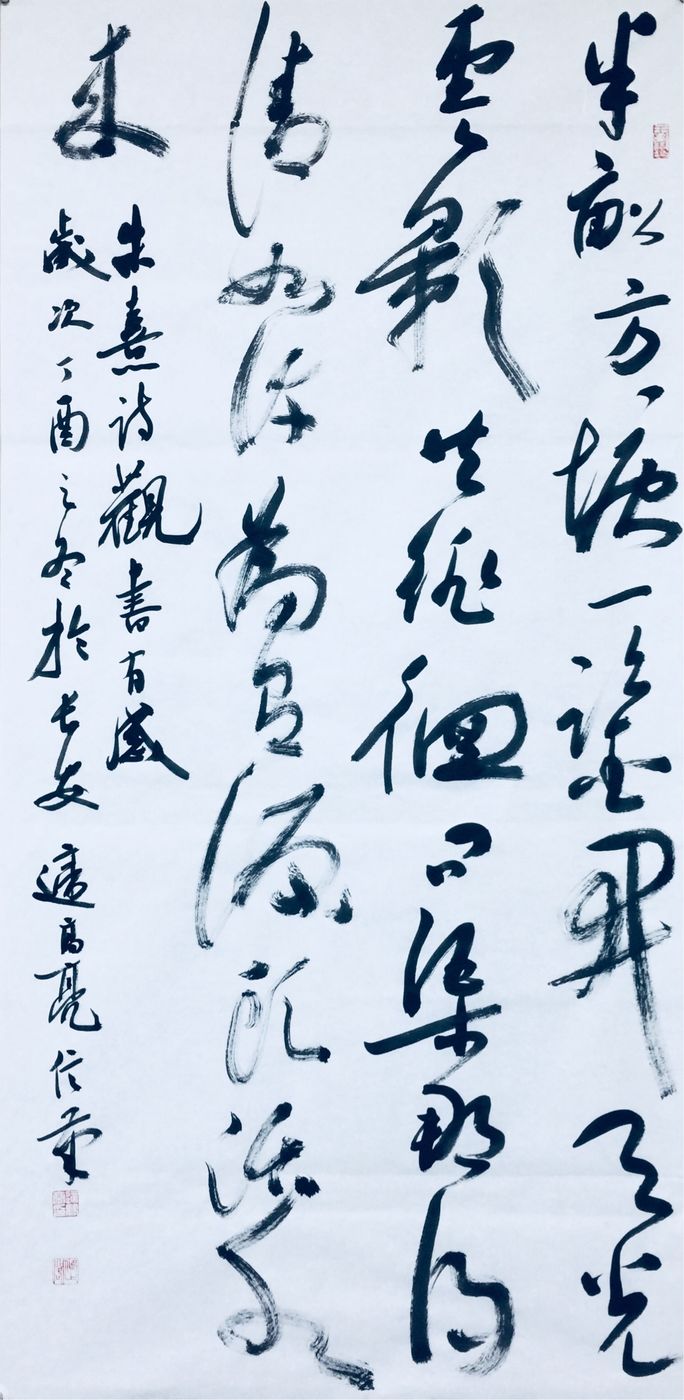 半畝方塘一鑑開天光
雲影共徘徊問渠那得
清如許為有源頭活水
來
朱熹詩觀書有感
歲次丁酉之冬於長安高亮信筆